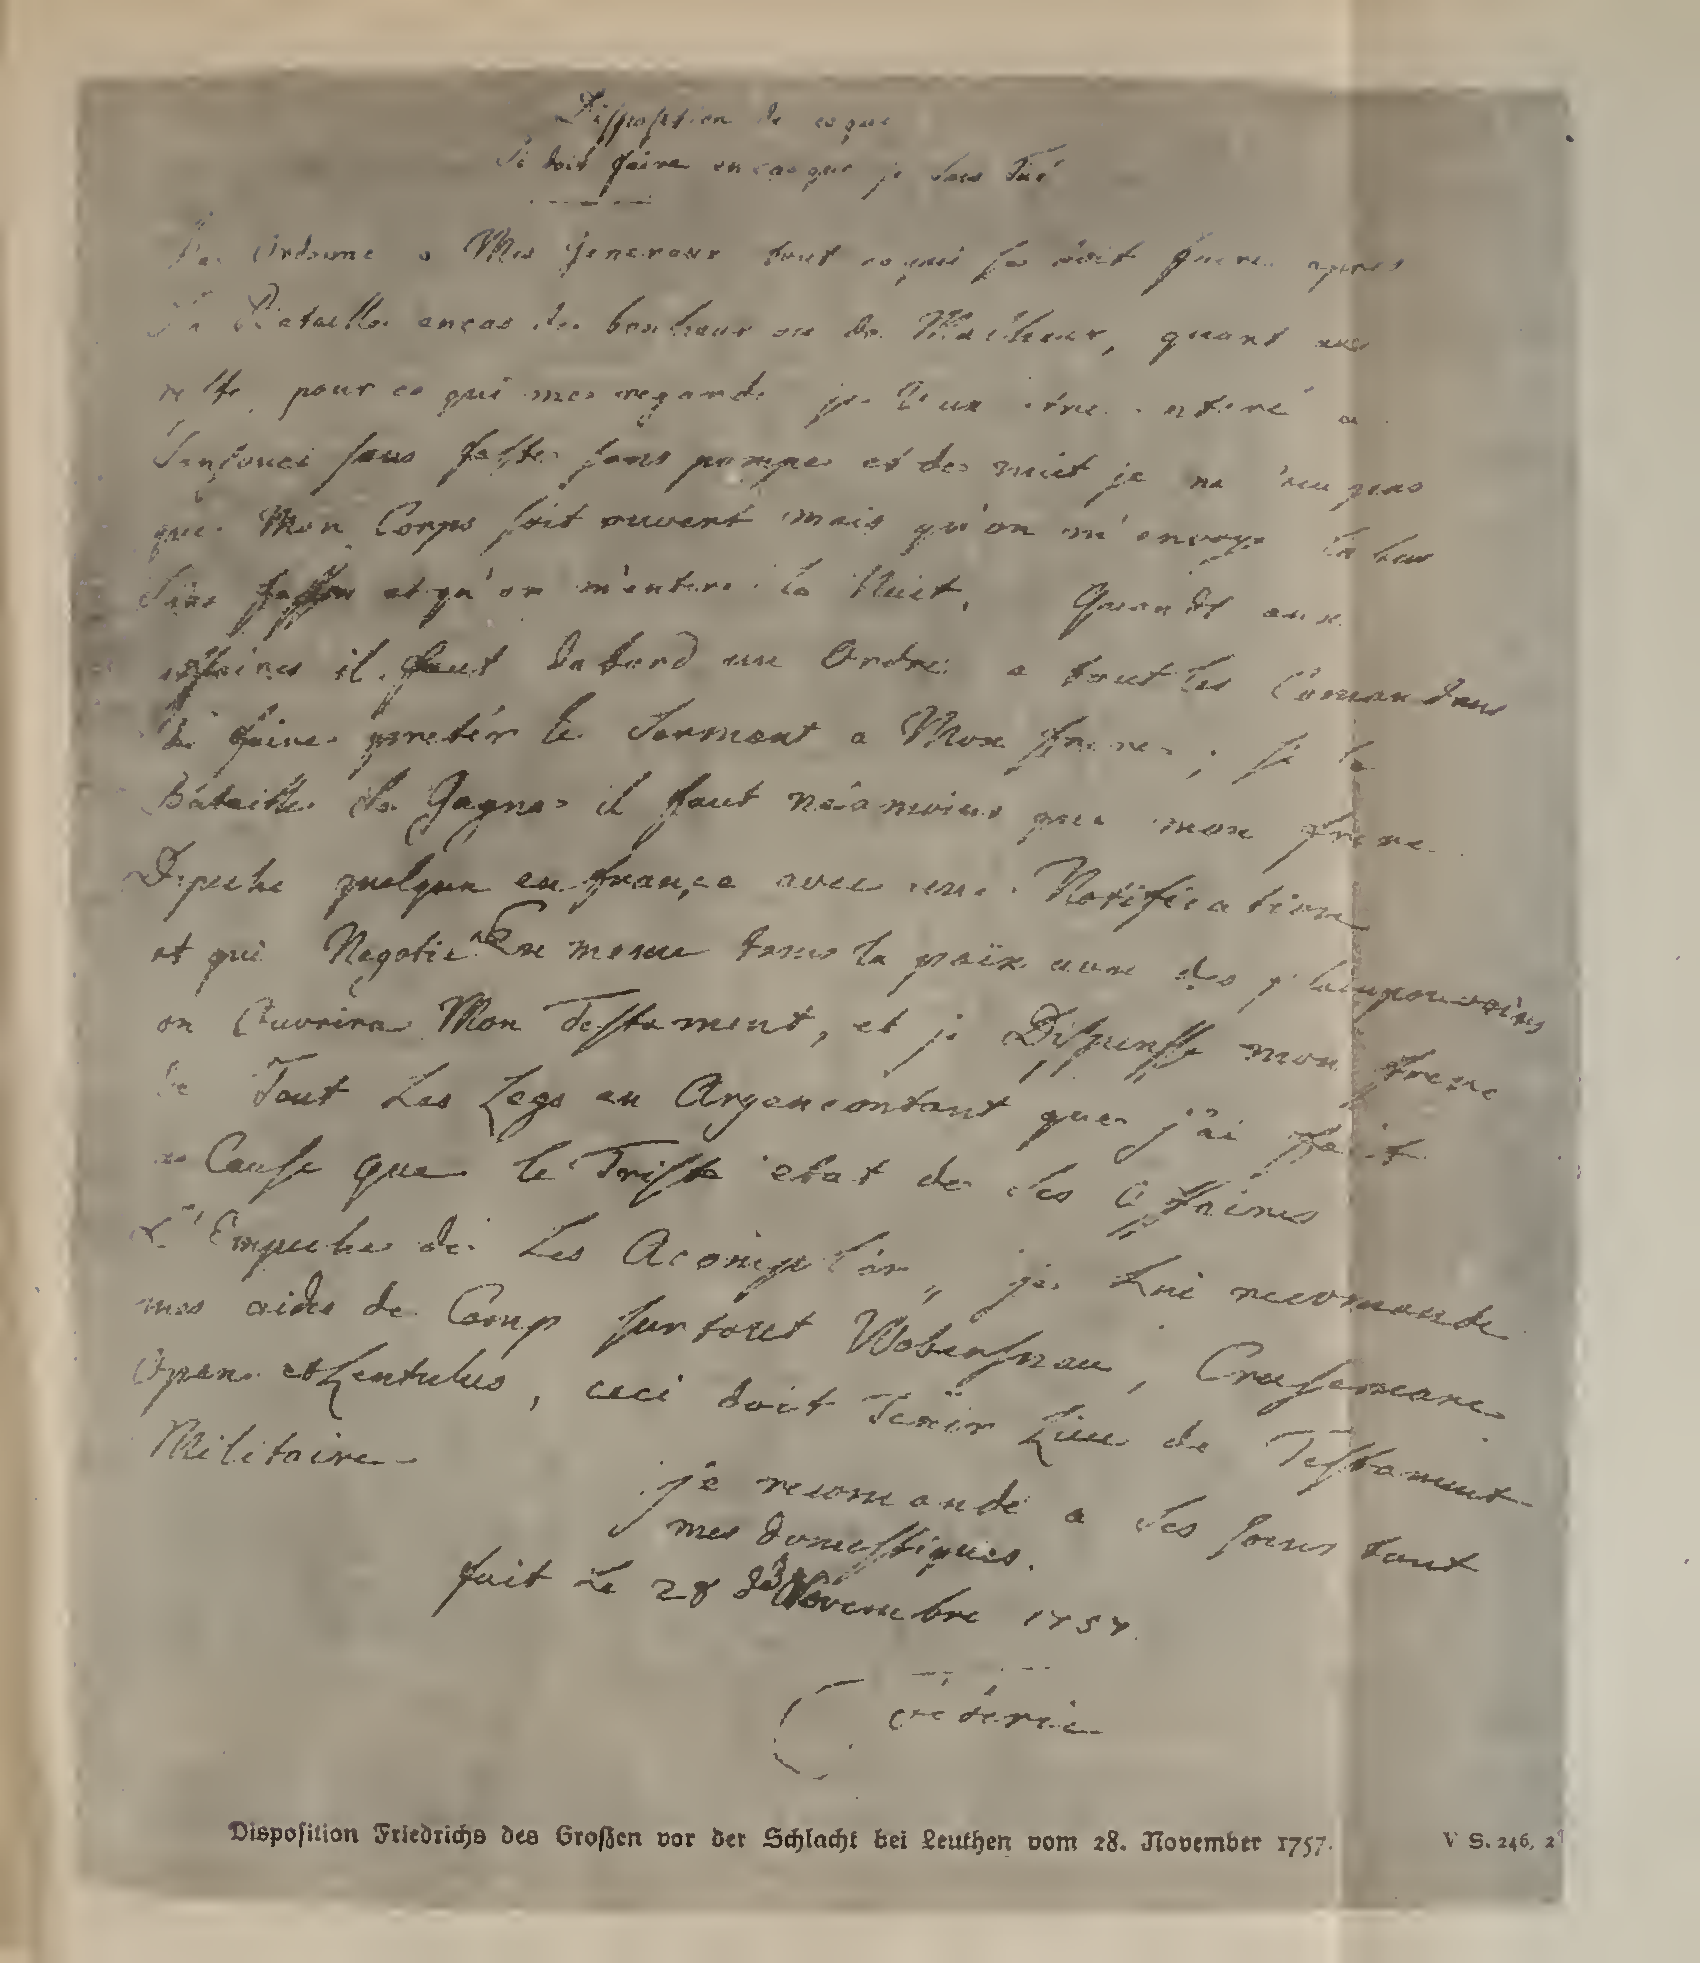 Disposition de ce que
Si doit faire en cas que je sois Tué
J'ai Ordonné a Mes Generaux tout ce qui se doit faire apres
La Bataille en cas de bonheur ou de Malheur, quant au
reste pour ce qui me regarde je Veux etre enteré a
Sansouci sans faste sans pompe et de nuit je ne veu pas
que Mon Corps soit ouvert mais qu'on m'envoye la bas
Sans fasson et qu'on m'entere la Nuit. Quandt aux
affaires il faut Dabord un Ordre a tout les Comandans
de faire pretér le Serment a Mon frere, si la
Bataille se Gagne il faut néamoins que mon frere
Depeche quelqun en france avec une Notification
et qui Negotie En meme tems la païx avec des pleinpouvoirs
on Ouvrira Mon Testament, et je Dispensse mon frere
de Tout Les Legs en Argencontant que j'ai fait
a Cause que le Triste etat de ses Affaires
L'Empeche de Les Acomplir, je Lui recomande
mes aides de Camp surtout Wobersnau, Crusemarc
Open et Lentulus, ceci doit Tenir Lieu de Testament
Militaire
je recomande a ses soins tout
mes domestiques.
fait Le 28 Novembre 1757.
Federic
Disposition Friedrichs des Großen vor der Schlacht bei Leuthen vom 28. November 1757.
V S. 246, 2